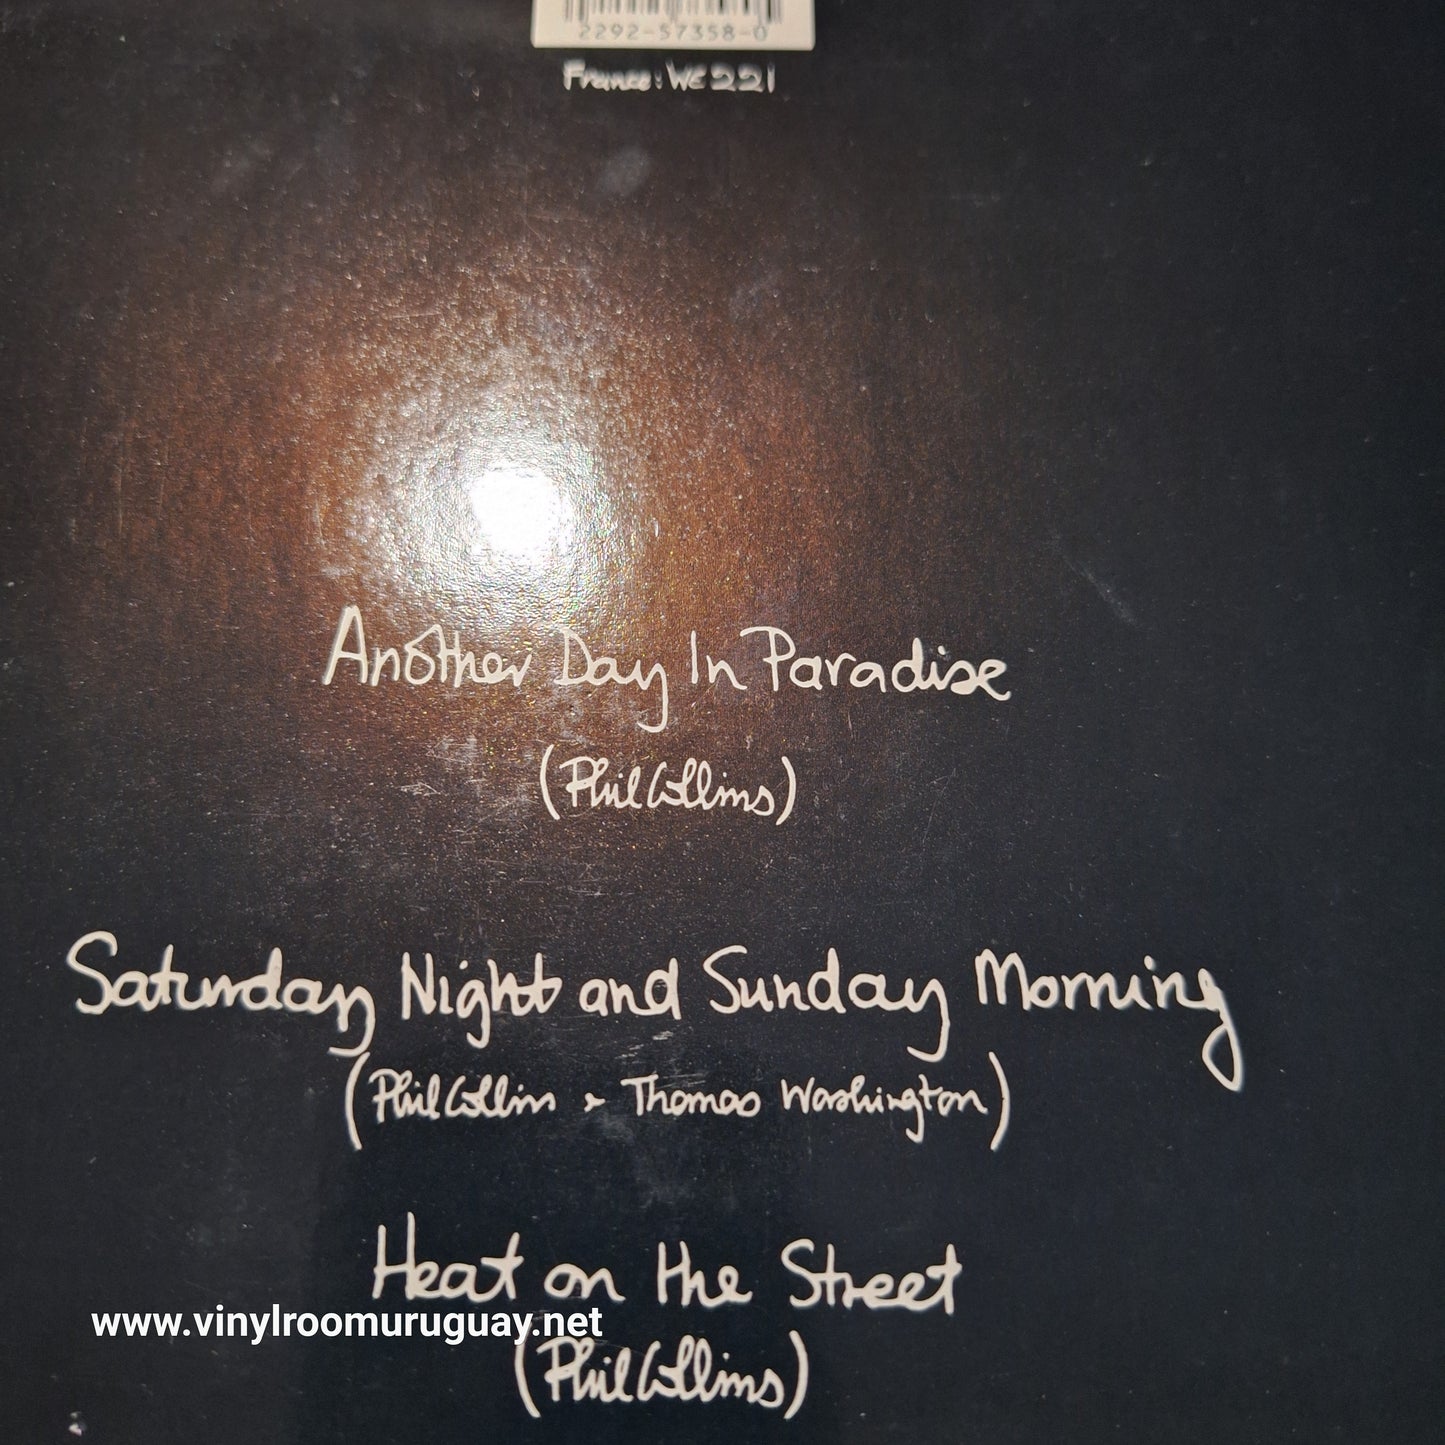 2292-57358-0
France: WE 221
Another Day In Paradise
(Phil Collins)
Saturday Night and Sunday Morning
(Phil Collins & Thomas Washington)
Heat on the Street
www.vinylroomuruguay.net
(Phil Collins)